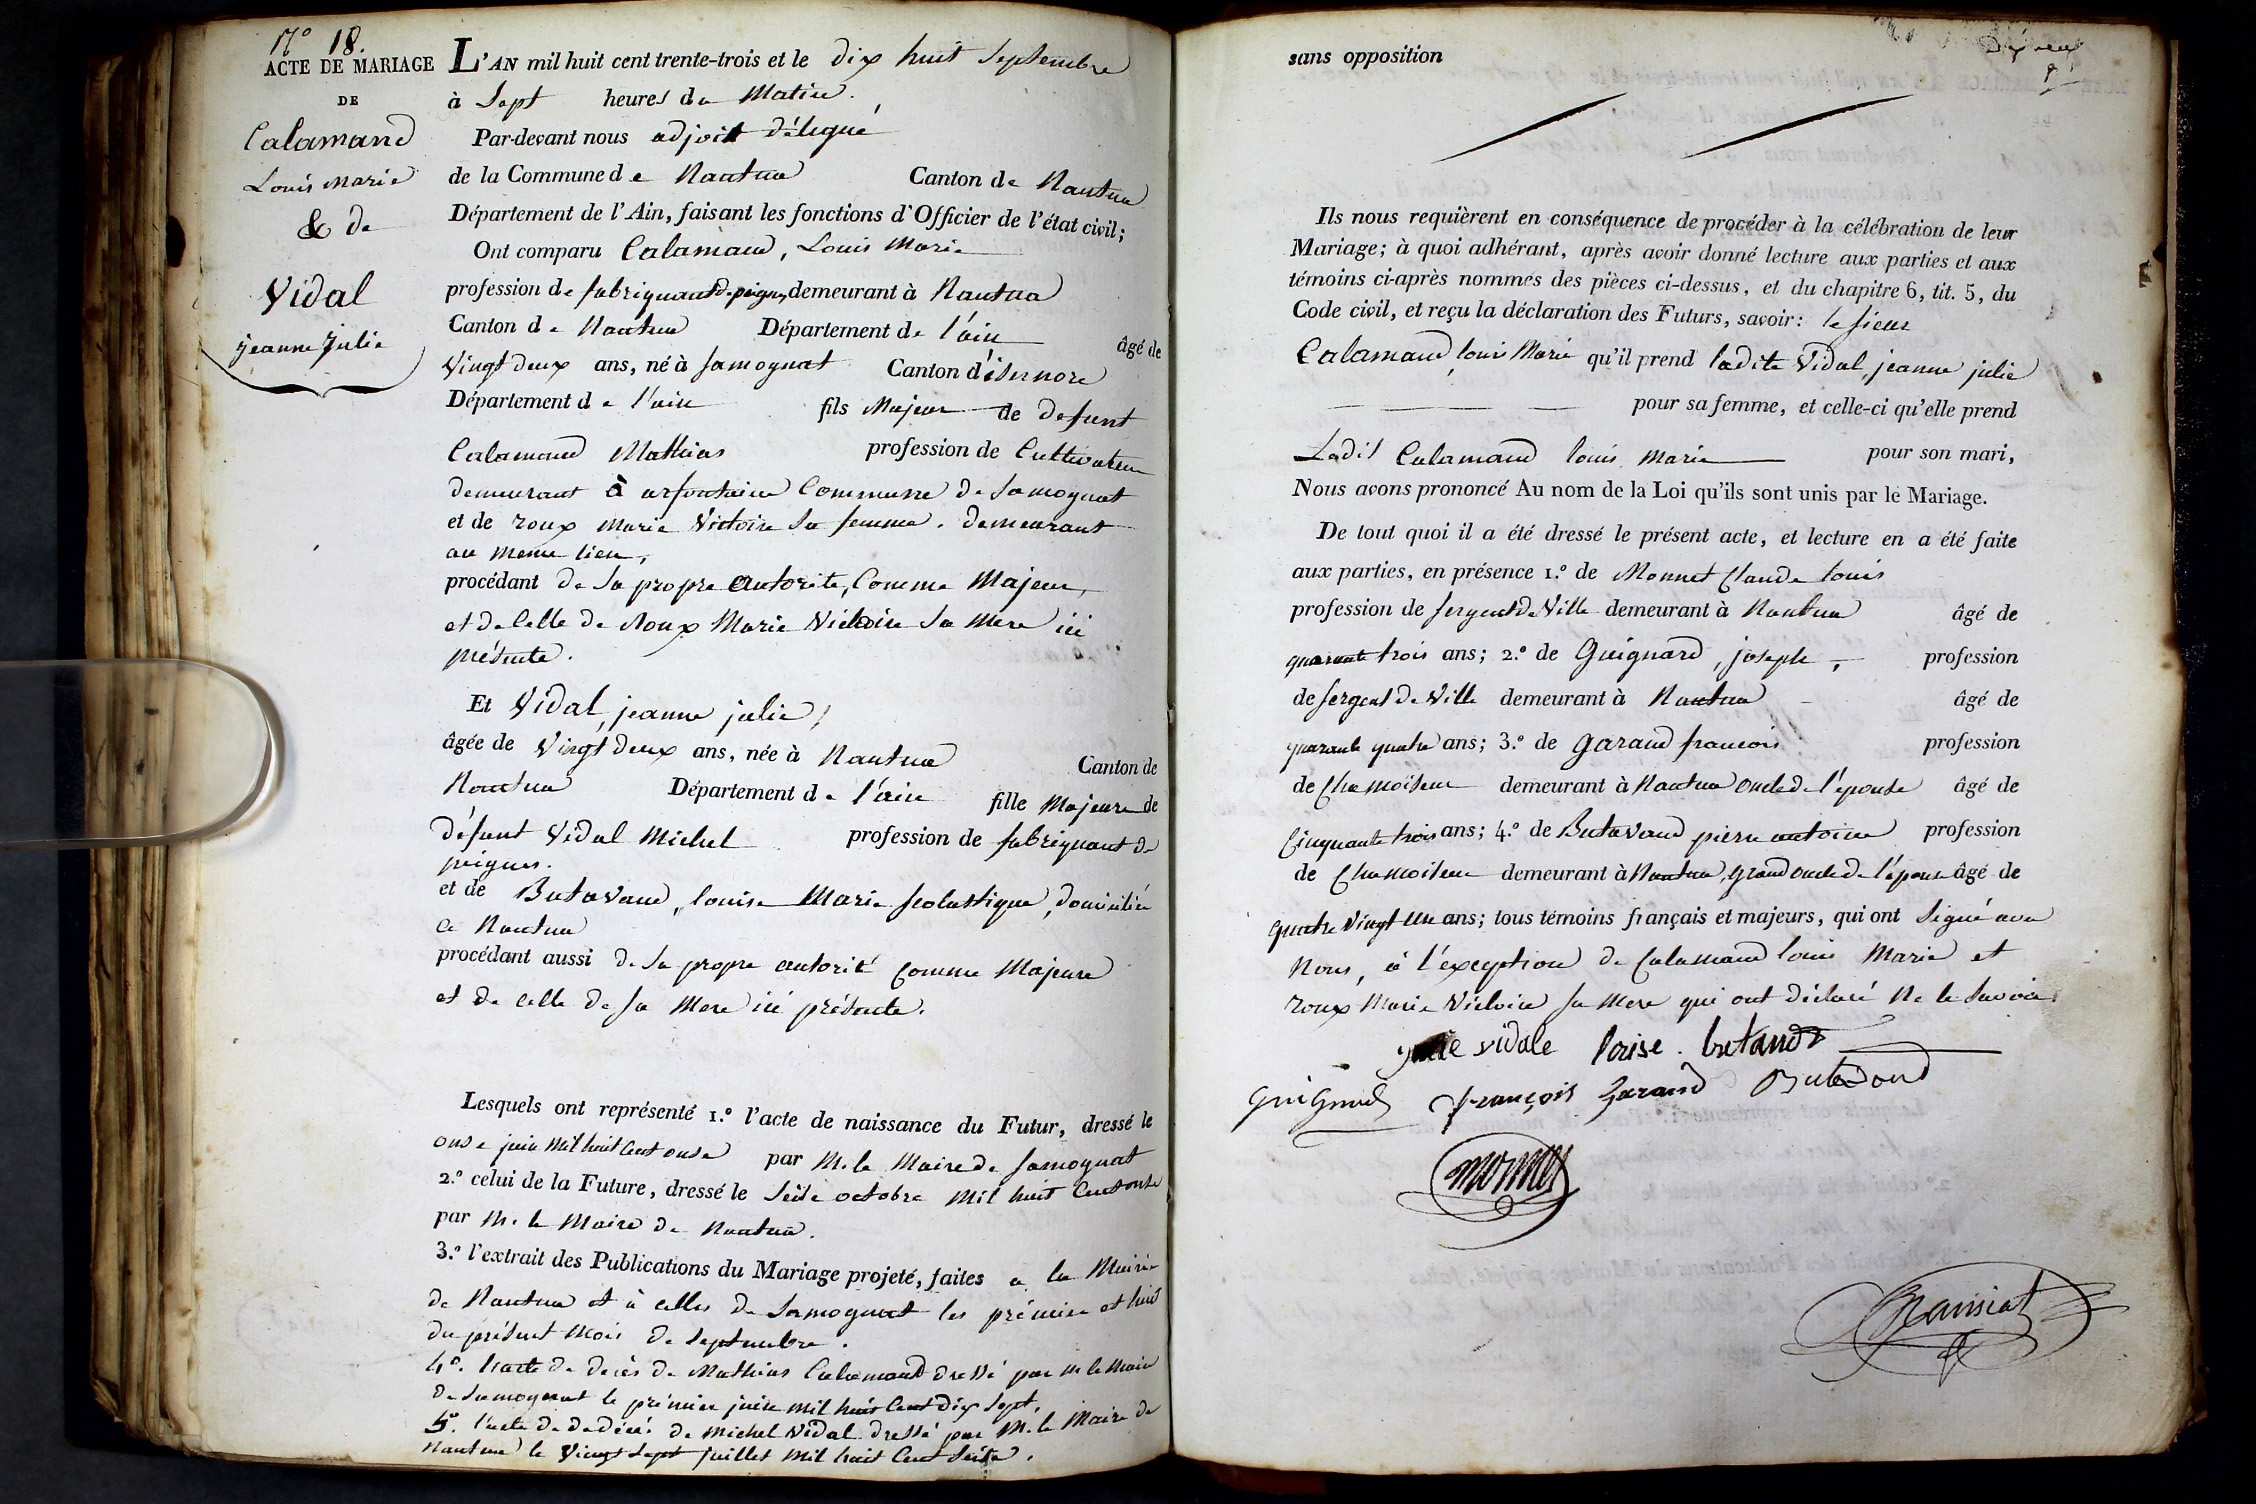 N° 18.
ACTE DE MARIAGE
DE
Calamand
Louis Marie
& de
Vidal
jeanne Julie
L'AN mil huit cent trente-trois et le dix huit Septembre
à Sept heures du Matin.
Par-devant nous adjoit délégué
de la Commune de Nantua Canton de Nantua
Département de l'Ain, faisant les fonctions d'Officier de l'état civil;
Ont comparu Calamand, Louis Marie
profession de fabriquant de peignes demeurant à Nantua
Canton de Nantua Département de l'ain âgé de
Vingt deux ans, né à Samognat Canton d'isernore
Département de l'ain fils Majeur de defunt
Calamand Mathias profession de Cultivateur
demeurant à arfontaine Commune de Samognat
et de roux Marie Victoire Sa femme. demeurant
au meme lieu,
procédant de Sa propre autorité, Comme Majeur,
et de Celle de Roux Marie Victoire Sa Mere ici
présente.
Et Vidal, jeanne julie,
âgée de Vingt deux ans, née à Nantua Canton de
Nantua Département de l'ain fille Majeure de
défunt Vidal Michel profession de fabriquant de
peignes.
et de Butavand, louise Marie scolastique, domiciliée
a Nantua
procédant aussi de Sa propre autorité Comme Majeure
et de Celle de Sa Mere ici présente.
Lesquels ont représenté 1.° l'acte de naissance du Futur, dressé le
onse juin Mil huit Cent onse par M. le Maire de Samognat
2.° celui de la Future, dressé le Seise octobre Mil huit Cent onse
par M. le Maire de Nantua.
3.° l'extrait des Publications du Mariage projeté, faites a la Mairie
de Nantua et à celles de Samognat les prémier et huit
du présent Mois de Septembre.
4°. l'acte de decès de Mathias Calamand dressé par M le Maire
de Samognat le prémier juin Mil huit Cent dix Sept.
5°. l'acte de de décé: de Michel Vidal dressé par M. le Maire de
Nantua le Vingt Sept juillet Mil huit Cent Seise.
sans opposition
Ils nous requièrent en conséquence de procéder à la célébration de leur
Mariage; à quoi adhérant, après avoir donné lecture aux parties et aux
témoins ci-après nommés des pièces ci-dessus, et du chapitre 6, tit. 5, du
Code civil, et reçu la déclaration des Futurs, savoir: le Sieur
Calamand, louis Marie qu'il prend ladite Vidal, jeanne julie
pour sa femme, et celle-ci qu'elle prend
Ledit Calamand louis Marie pour son mari,
Nous avons prononcé Au nom de la Loi qu'ils sont unis par le Mariage.
De tout quoi il a été dressé le présent acte, et lecture en a été faite
aux parties, en présence 1.° de Monnet Claude louis
profession de Sergent de Ville demeurant à Nantua âgé de
quarante trois ans; 2.° de Guignard, joseph, profession
de Sergent de Ville demeurant à Nantua âgé de
quarante quatre ans; 3.° de Garand francois profession
de Chamoiseur demeurant à Nantua oncle de l'épouse âgé de
Cinquante trois ans; 4.° de Butavand pierre antoine profession
de Chamoiseur demeurant à Nantua, grand oncle de l'épouse âgé de
quatre Vingt un ans; tous témoins français et majeurs, qui ont Signé avec
Nous, à l'exception de Calamand louis Marie et
roux Marie Victoire Sa Mere qui ont déclaré Ne le Savoir
julie vidale louise. butavand
Guignard françois Garand Butavand
monnet